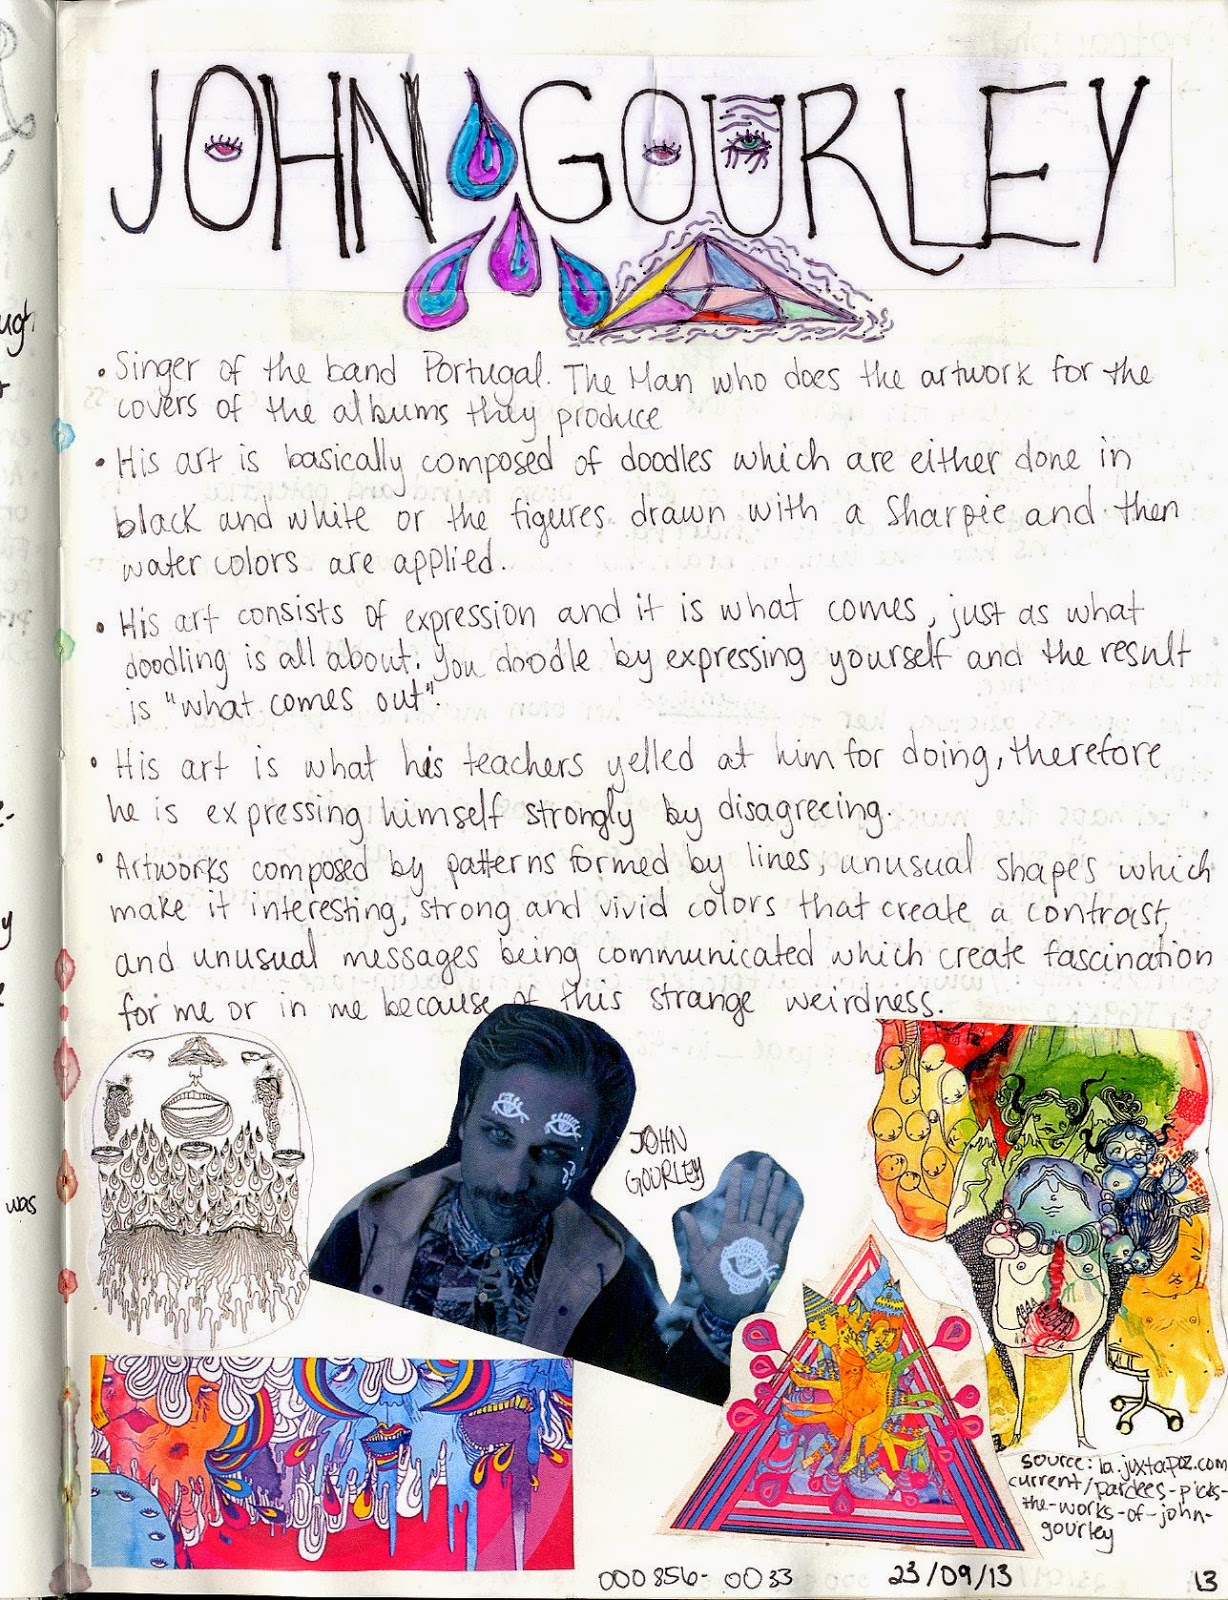 JOHN GOURLEY
• Singer of the band Portugal. The Man who does the artwork for the
covers of the albums they produce
• His art is basically composed of doodles which are either done in
black and white or the figures drawn with a Sharpie and then
water colors are applied.
• His art consists of expression and it is what comes, just as what
doodling is all about. You doodle by expressing yourself and the result
is "what comes out".
• His art is what his teachers yelled at him for doing, therefore
he is expressing himself strongly by disagreeing.
• Artworks composed by patterns formed by lines, unusual shapes which
make it interesting, strong and vivid colors that create a contrast,
and unusual messages being communicated which create fascination
for me or in me because of this strange weirdness.
JOHN
GOURLEY
source: la.juxtapoz.com
current/pardees-picks-
the-works-of-john-
gourley
was
000856-0033
23/09/13
13